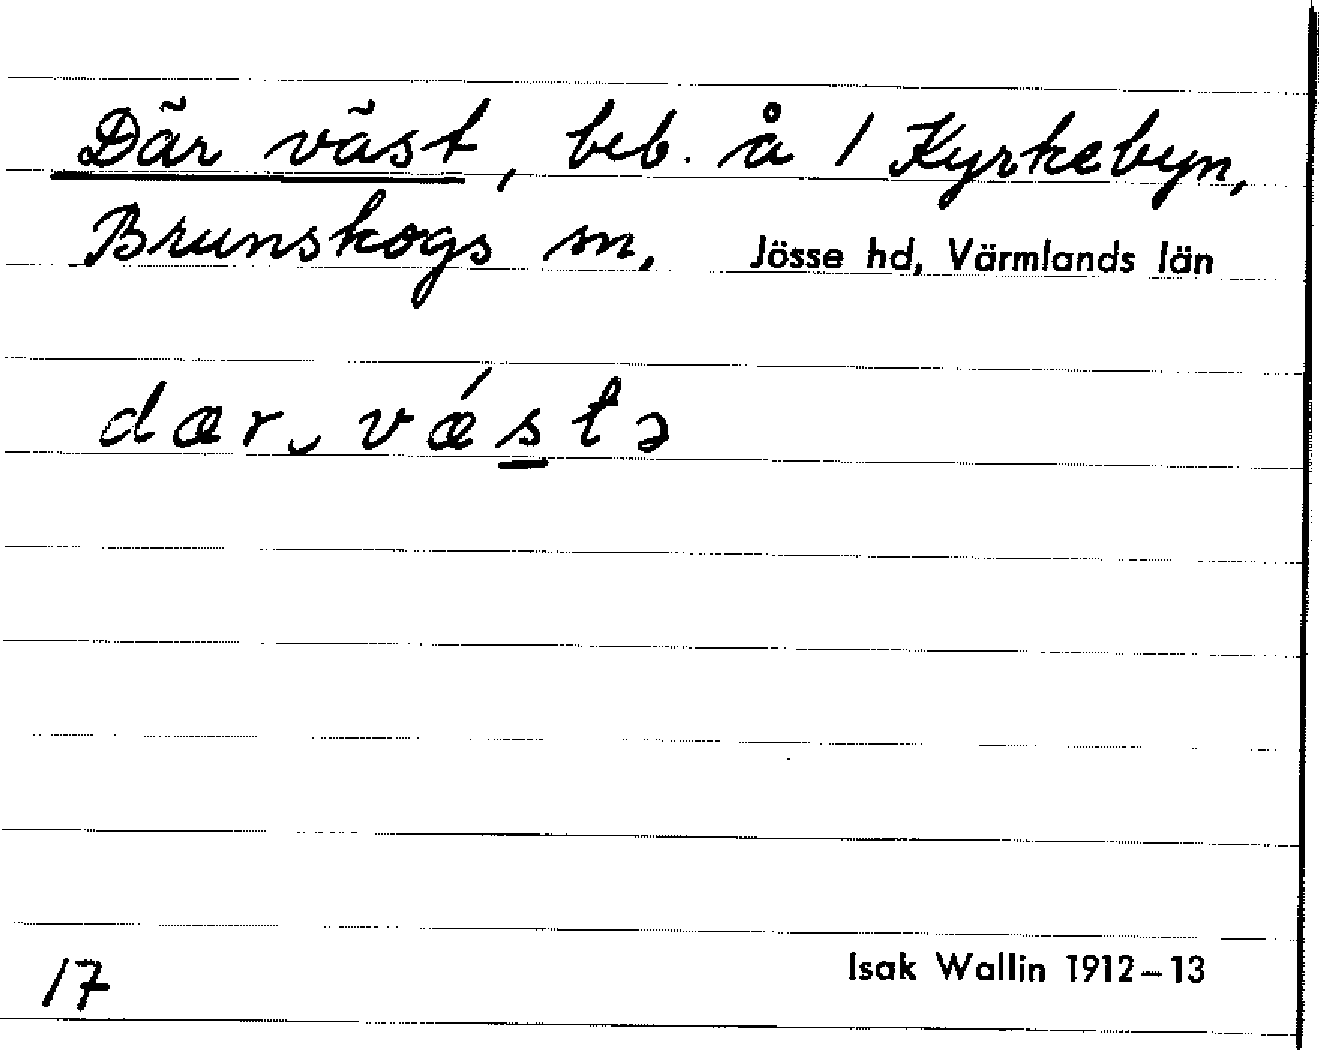 Där väst, beb. å 1 Kyrkebyn,
Brunskogs sn, Jösse hd, Värmlands län
dær‿vǽstə
17
Isak Wallin 1912–13